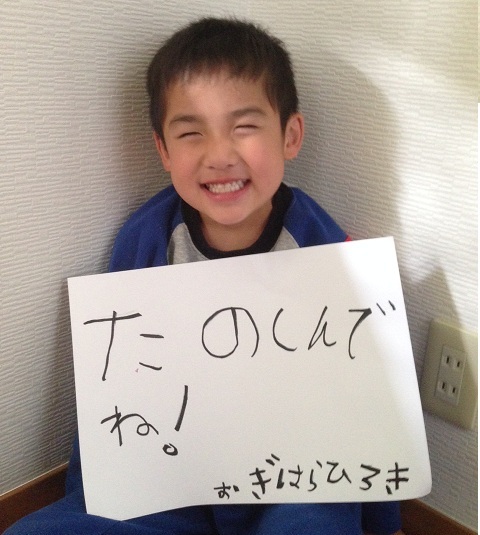 たのしんで
ね!
おぎはらひろき